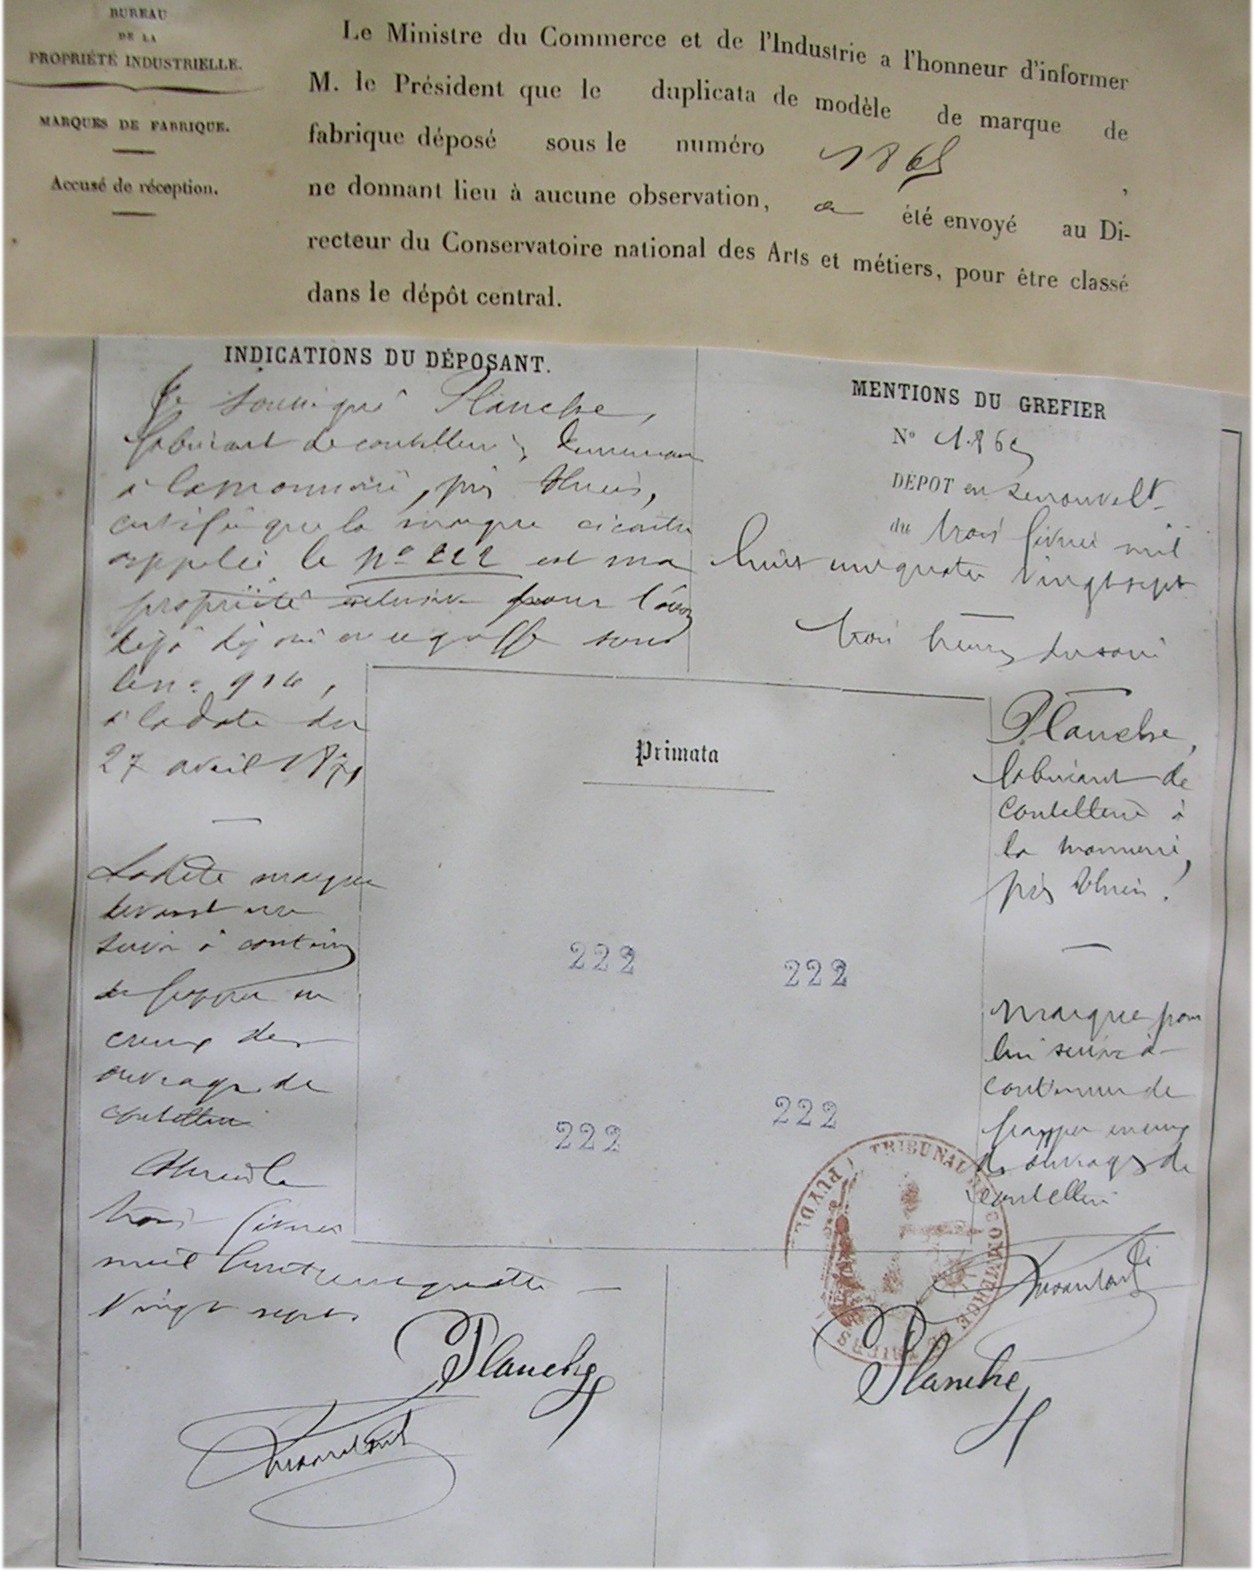 BUREAU
DE LA
PROPRIÉTÉ INDUSTRIELLE.
MARQUES DE FABRIQUE.
Accusé de réception.
Le Ministre du Commerce et de l'Industrie a l'honneur d'informer
M. le Président que le duplicata de modèle de marque de
fabrique déposé sous le numéro 1865,
ne donnant lieu à aucune observation, a été envoyé au Di-
recteur du Conservatoire national des Arts et métiers, pour être classé
dans le dépôt central.
INDICATIONS DU DÉPOSANT.
Je soussigné Planche,
fabricant de coutellerie, demeurant
à Lamonnerie, près Thiers,
certifie que la marque ci contre
appelée le no 222 est ma
propriété exclusive pour l'avoir
déjà déposé au greffe sous
le no 914,
à la date du
27 avril 1871
La dite marque
devant me
servir à continuer
de frapper en
creux des
ouvrages de
coutellerie
Thiers le
trois février
mil huit cent quatre
vingt sept.
Planche
MENTIONS DU GREFIER
No 1865
DÉPOT en renouvelt
du trois février mil
huit cent quatre vingt sept
trois heures du soir
Planche,
fabricant de
coutellerie à
la monnerie,
près Thiers.
Marque pour
lui servir à
continuer de
frapper en creux
des ouvrages de
coutellerie
Planche
Primata
222 222
222 222
TRIBUNAL DE COMMERCE DE THIERS
PUY DE